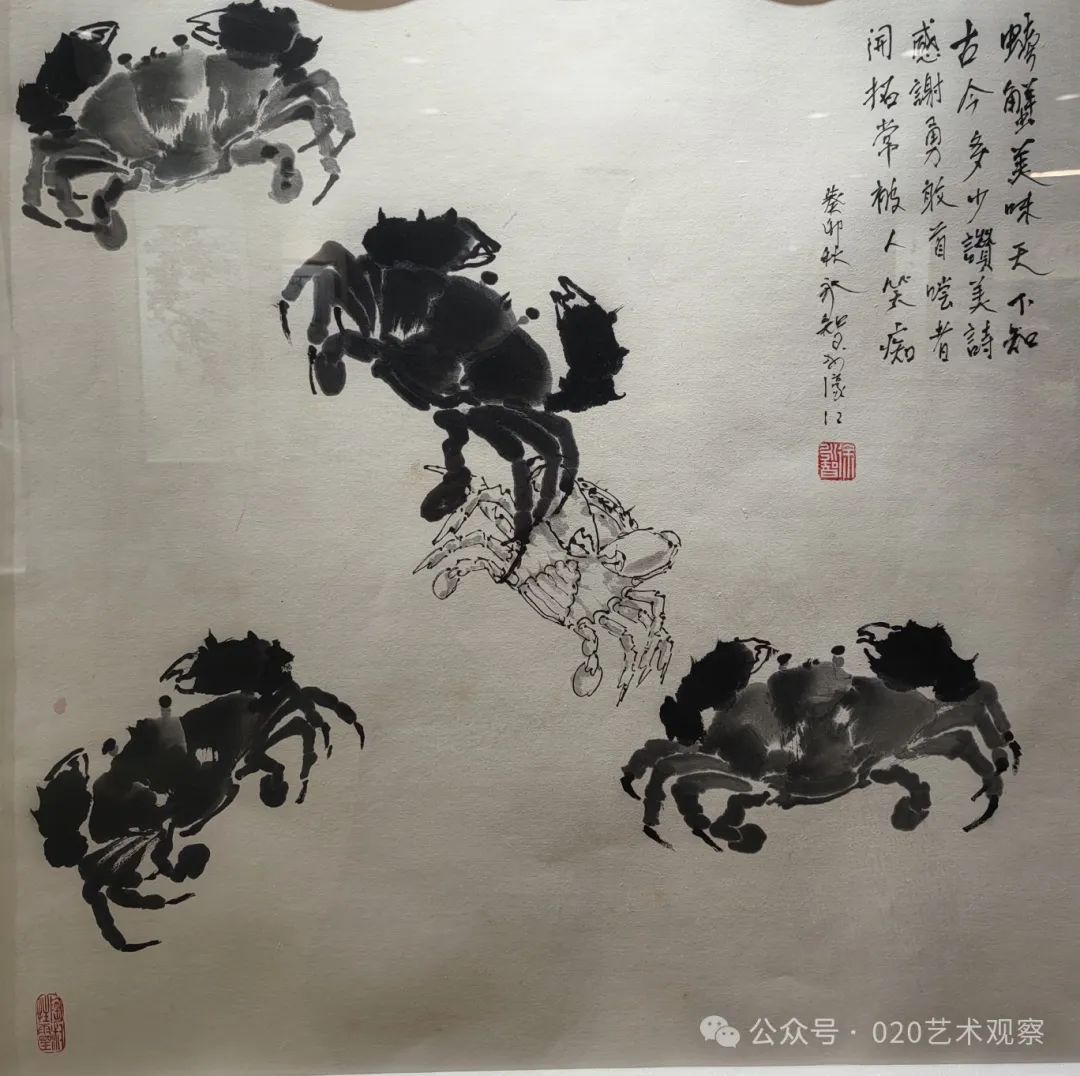 蠐蟹美味天下知
古今多少讚美詩
感謝勇敢首嚐者
開拓常被人笑痴
癸卯秋永智於漾江
公众号·020艺术观察